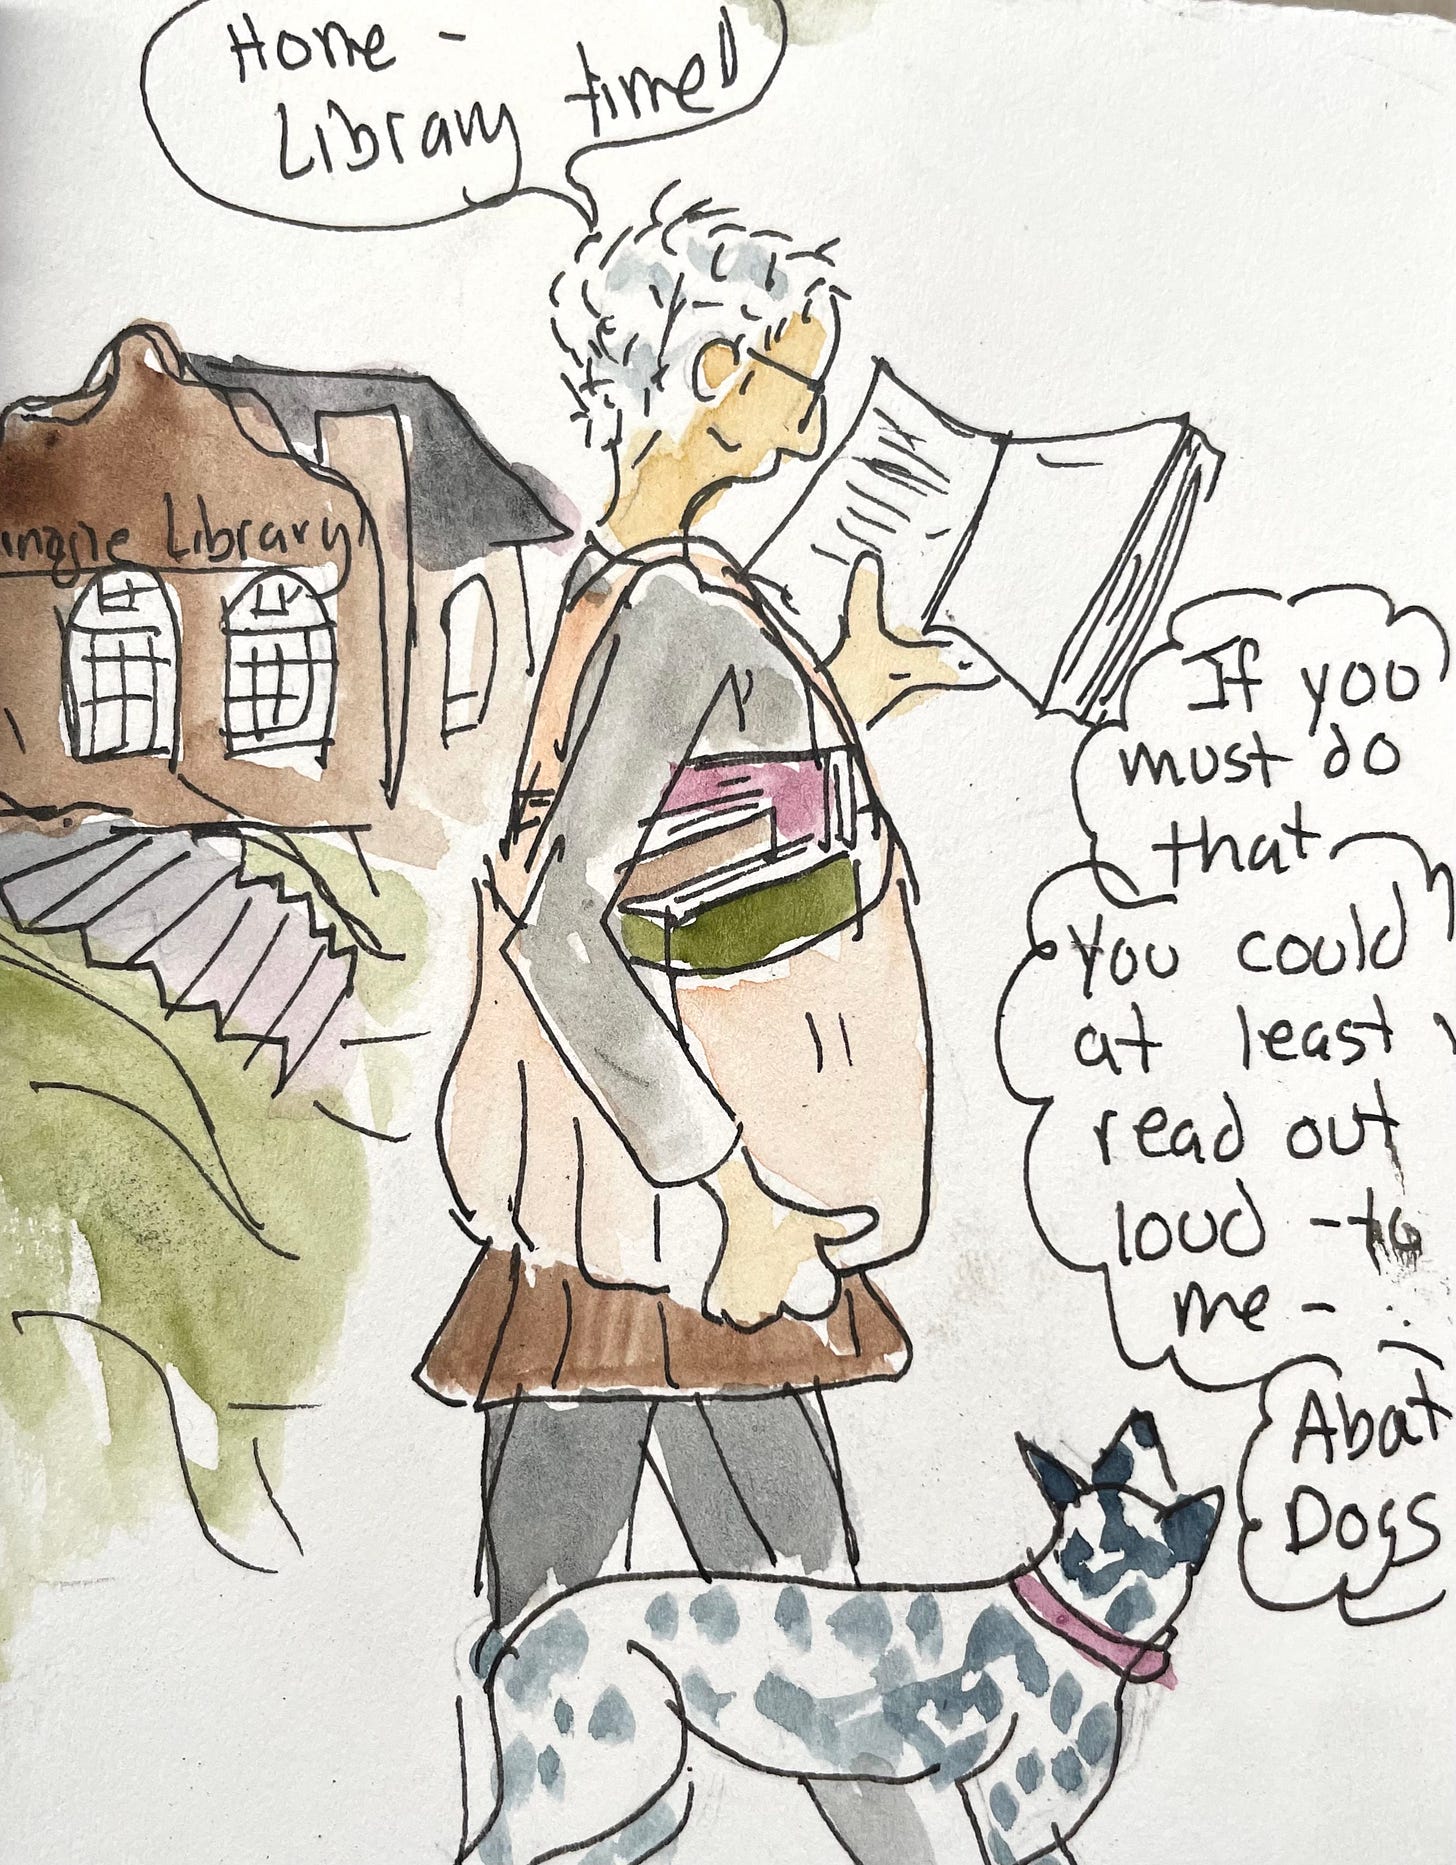 Home -
Library time!!
Library
If you
must do
that
You could
at least
read out
loud - to
me -
Abat
Dogs